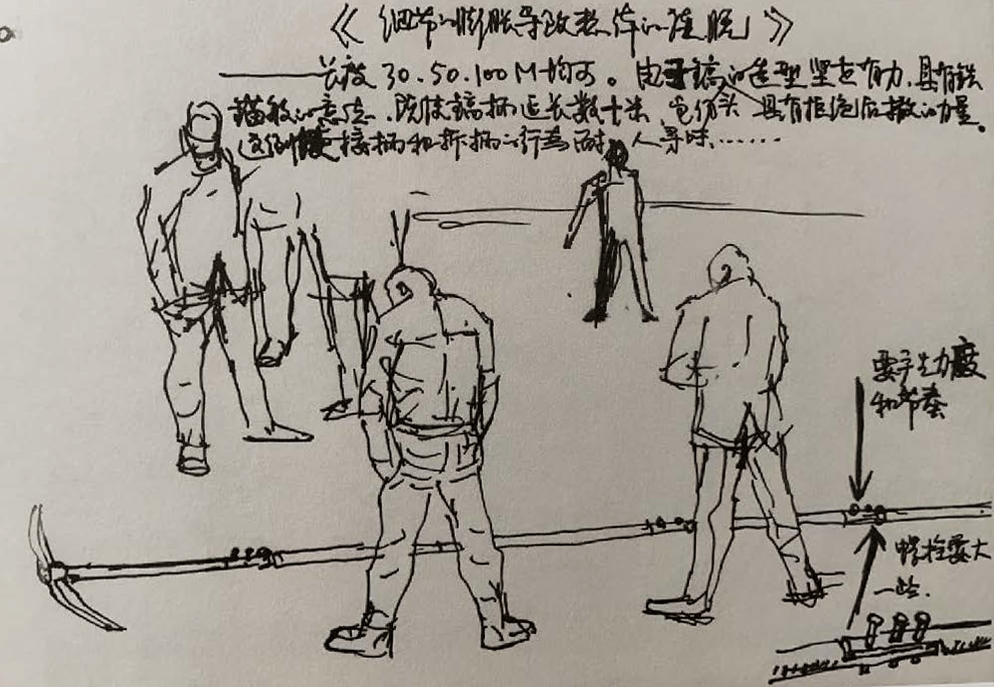 《细节的膨胀导致整体的虚脱》
长度30.50.100M均可。由于镐的造型坚定有力,具有铁
锚般的意志,既使镐柄延长数十米,它仍具有拒绝后撤的力量。
这倒使接柄和拆柄的行为耐人寻味……
力度
和节奏
螺栓要大
一些.